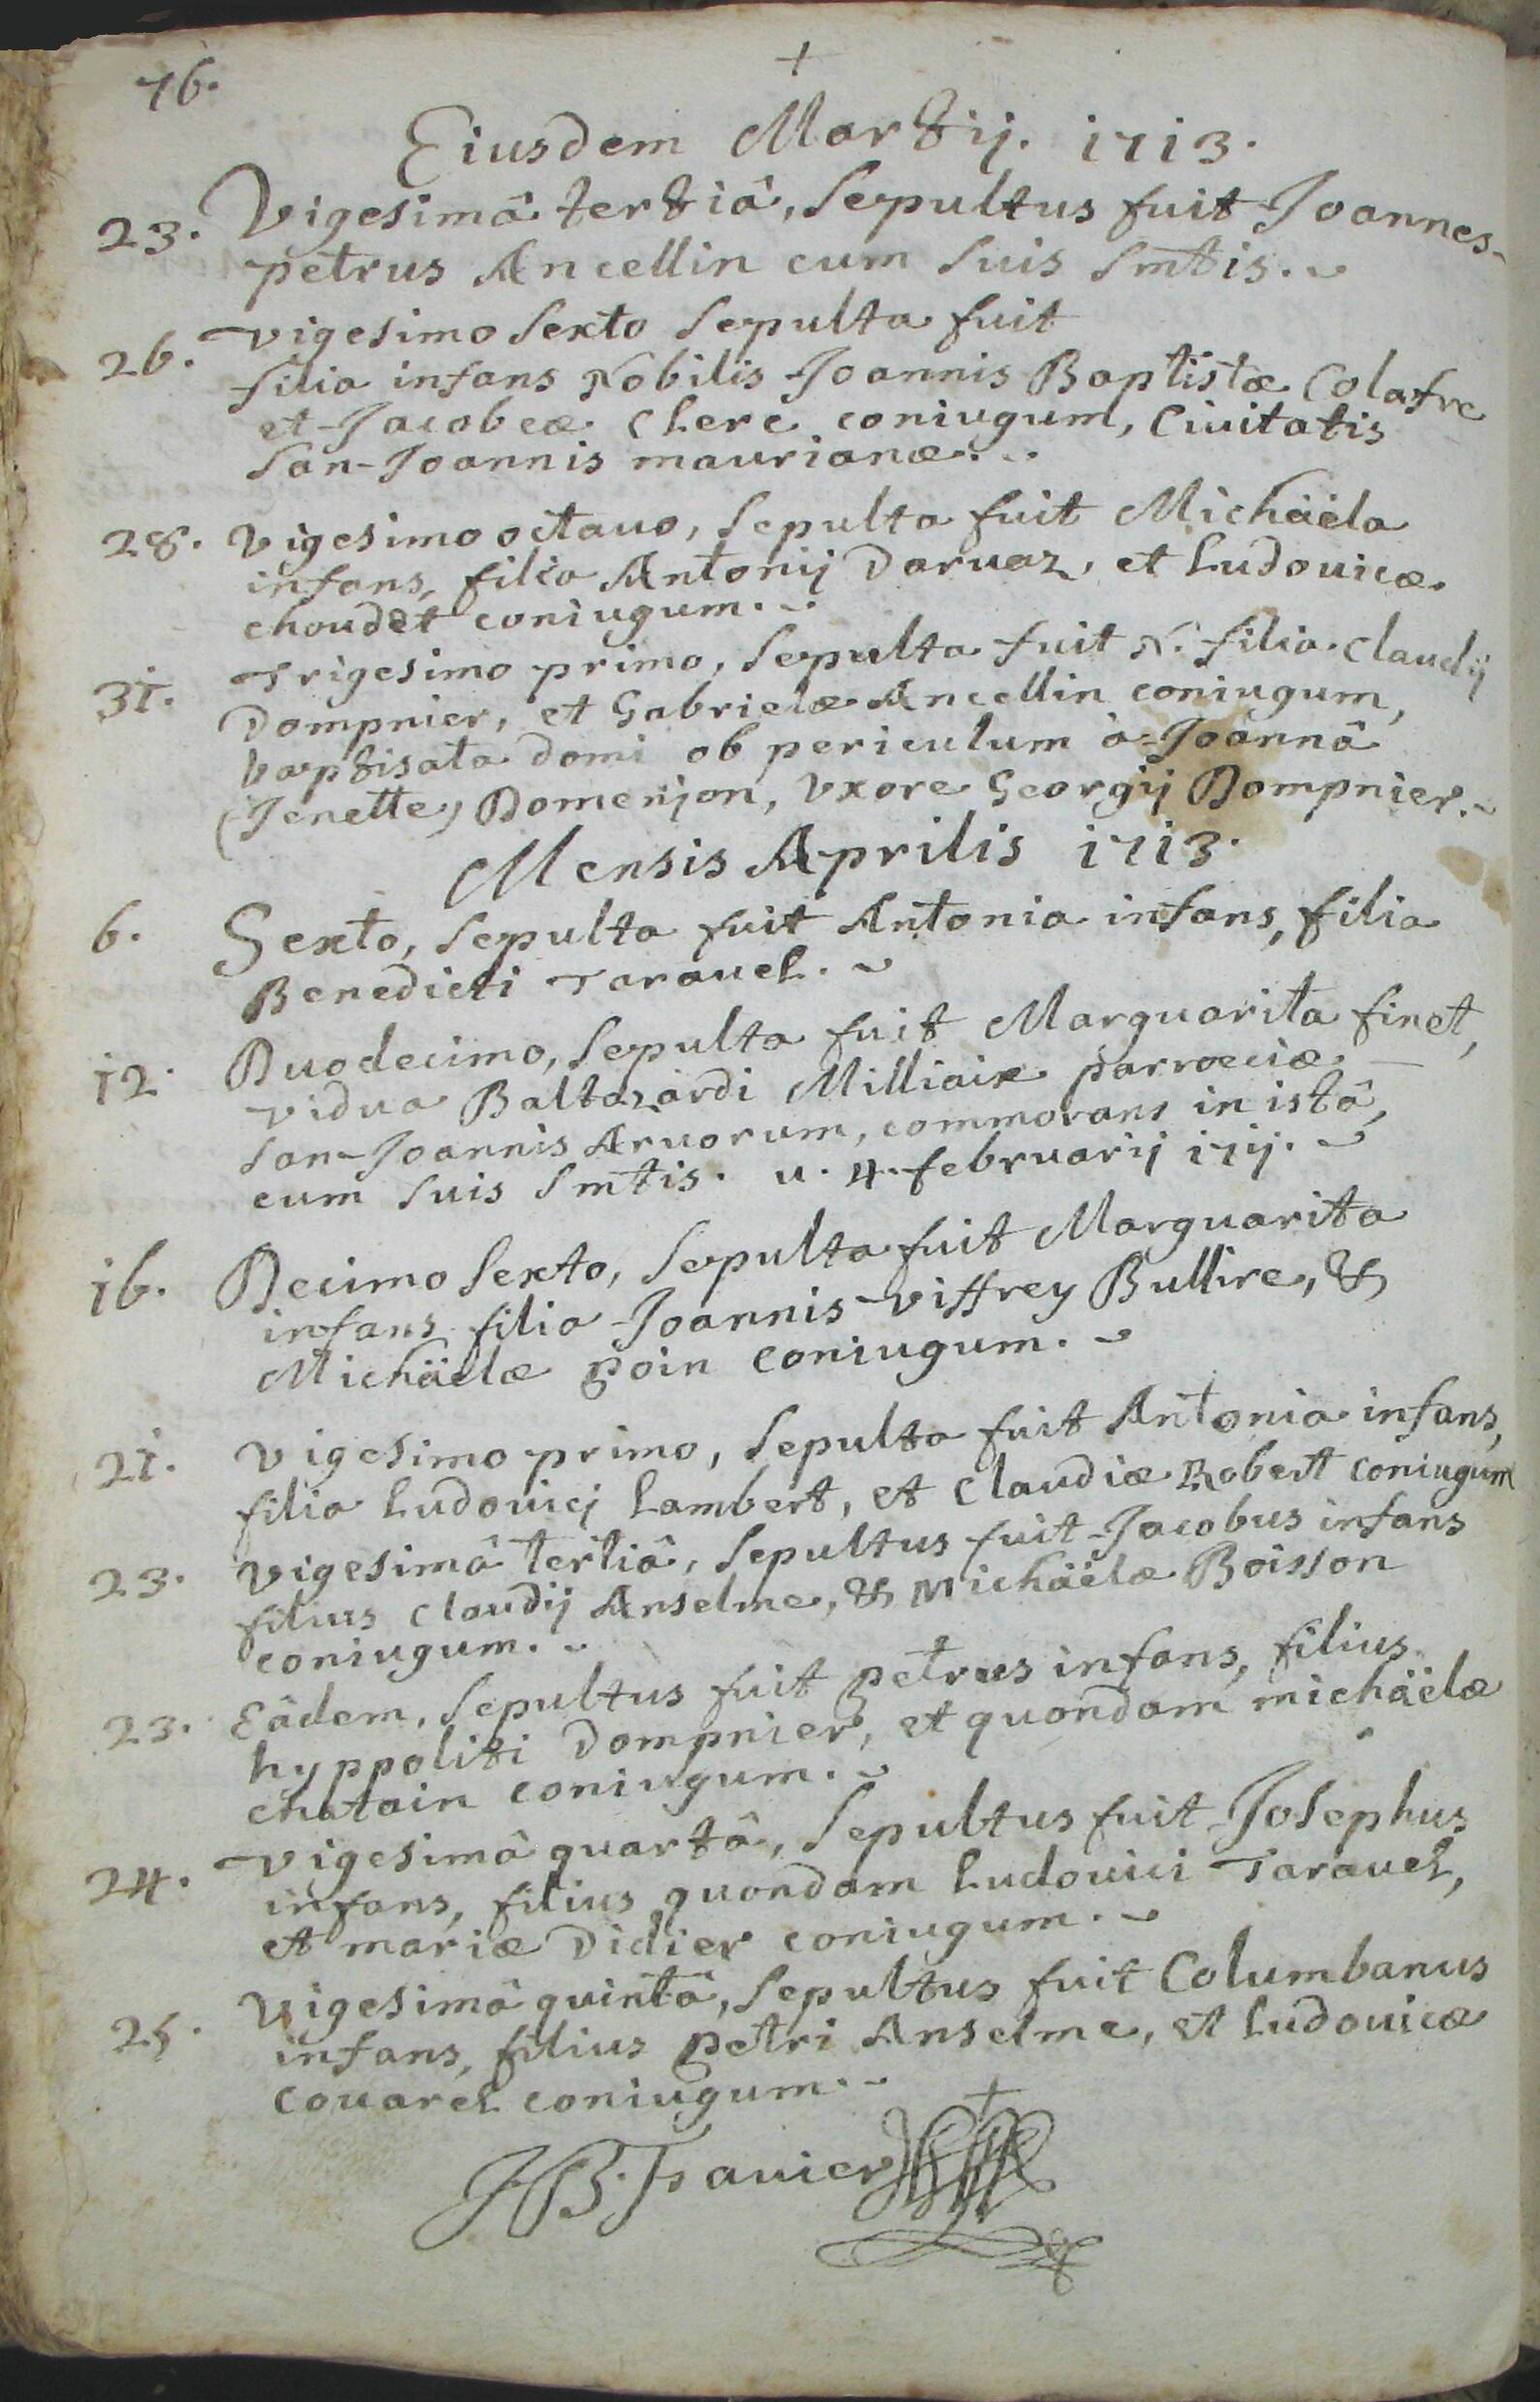 76.
+
Eiusdem Martij. 1713.
23. Vigesimâ tertiâ, Sepultus fuit Joannes-
petrus Ancellin cum suis smtis.
26. vigesimo Sexto Sepulta fuit
filia infans Nobilis Joannis Baptistæ Colafre
et Jacobeæ Clere coniugum, Ciuitatis
San-Joannis maurianæ.
28. vigesimo octauo, Sepulta fuit Michäëla
infans, filia Antonij Daruaz, et Ludouicæ
choudet coniugum.
31. Trigesimo primo, Sepulta fuit N. filia Claudij
Dompnier, et Gabrielæ Ancellin coniugum,
baptisata domi ob periculum à Joannâ
(Jenette) Domenjon, Vxore Georgij Dompnier.
Mensis Aprilis 1713.
6. Sexto, Sepulta fuit Antonia infans, filia
Benedicti Tarauel.
12. Duodecimo, Sepulta fuit Marguarita finet,
vidua Baltazardi Milliaix parroeciæ
San-Joannis Aruorum, commorans in istâ,
cum suis smtis. u. 4. februarij 1711.
16. Decimo Sexto, Sepulta fuit Marguarita
infans filia Joannis-viffrey Bullire, &
Michäelæ goin coniugum.
21. vigesimo primo, Sepulta fuit Antonia infans,
filia Ludouicj Lambert, et Claudiæ Robert coniugum
23. vigesimâ tertiâ, Sepultus fuit Jacobus infans
filius Claudij Anselme, & Michäëlæ Boisson
coniugum.
23. Eâdem, Sepultus fuit petrus infans, filius
hyppoliti Dompnier, et quondam michäëlæ
chatain coniugum.
24. vigesimâ quartâ, Sepultus fuit Josephus
infans, filius quondam Ludouici Tarauel,
et mariæ Didier coniugum.
25. vigesimâ quintâ, Sepultus fuit Columbanus
infans, filius petri Anselme, et Ludouicæ
Couarel coniugum.
+
JB. Frauier